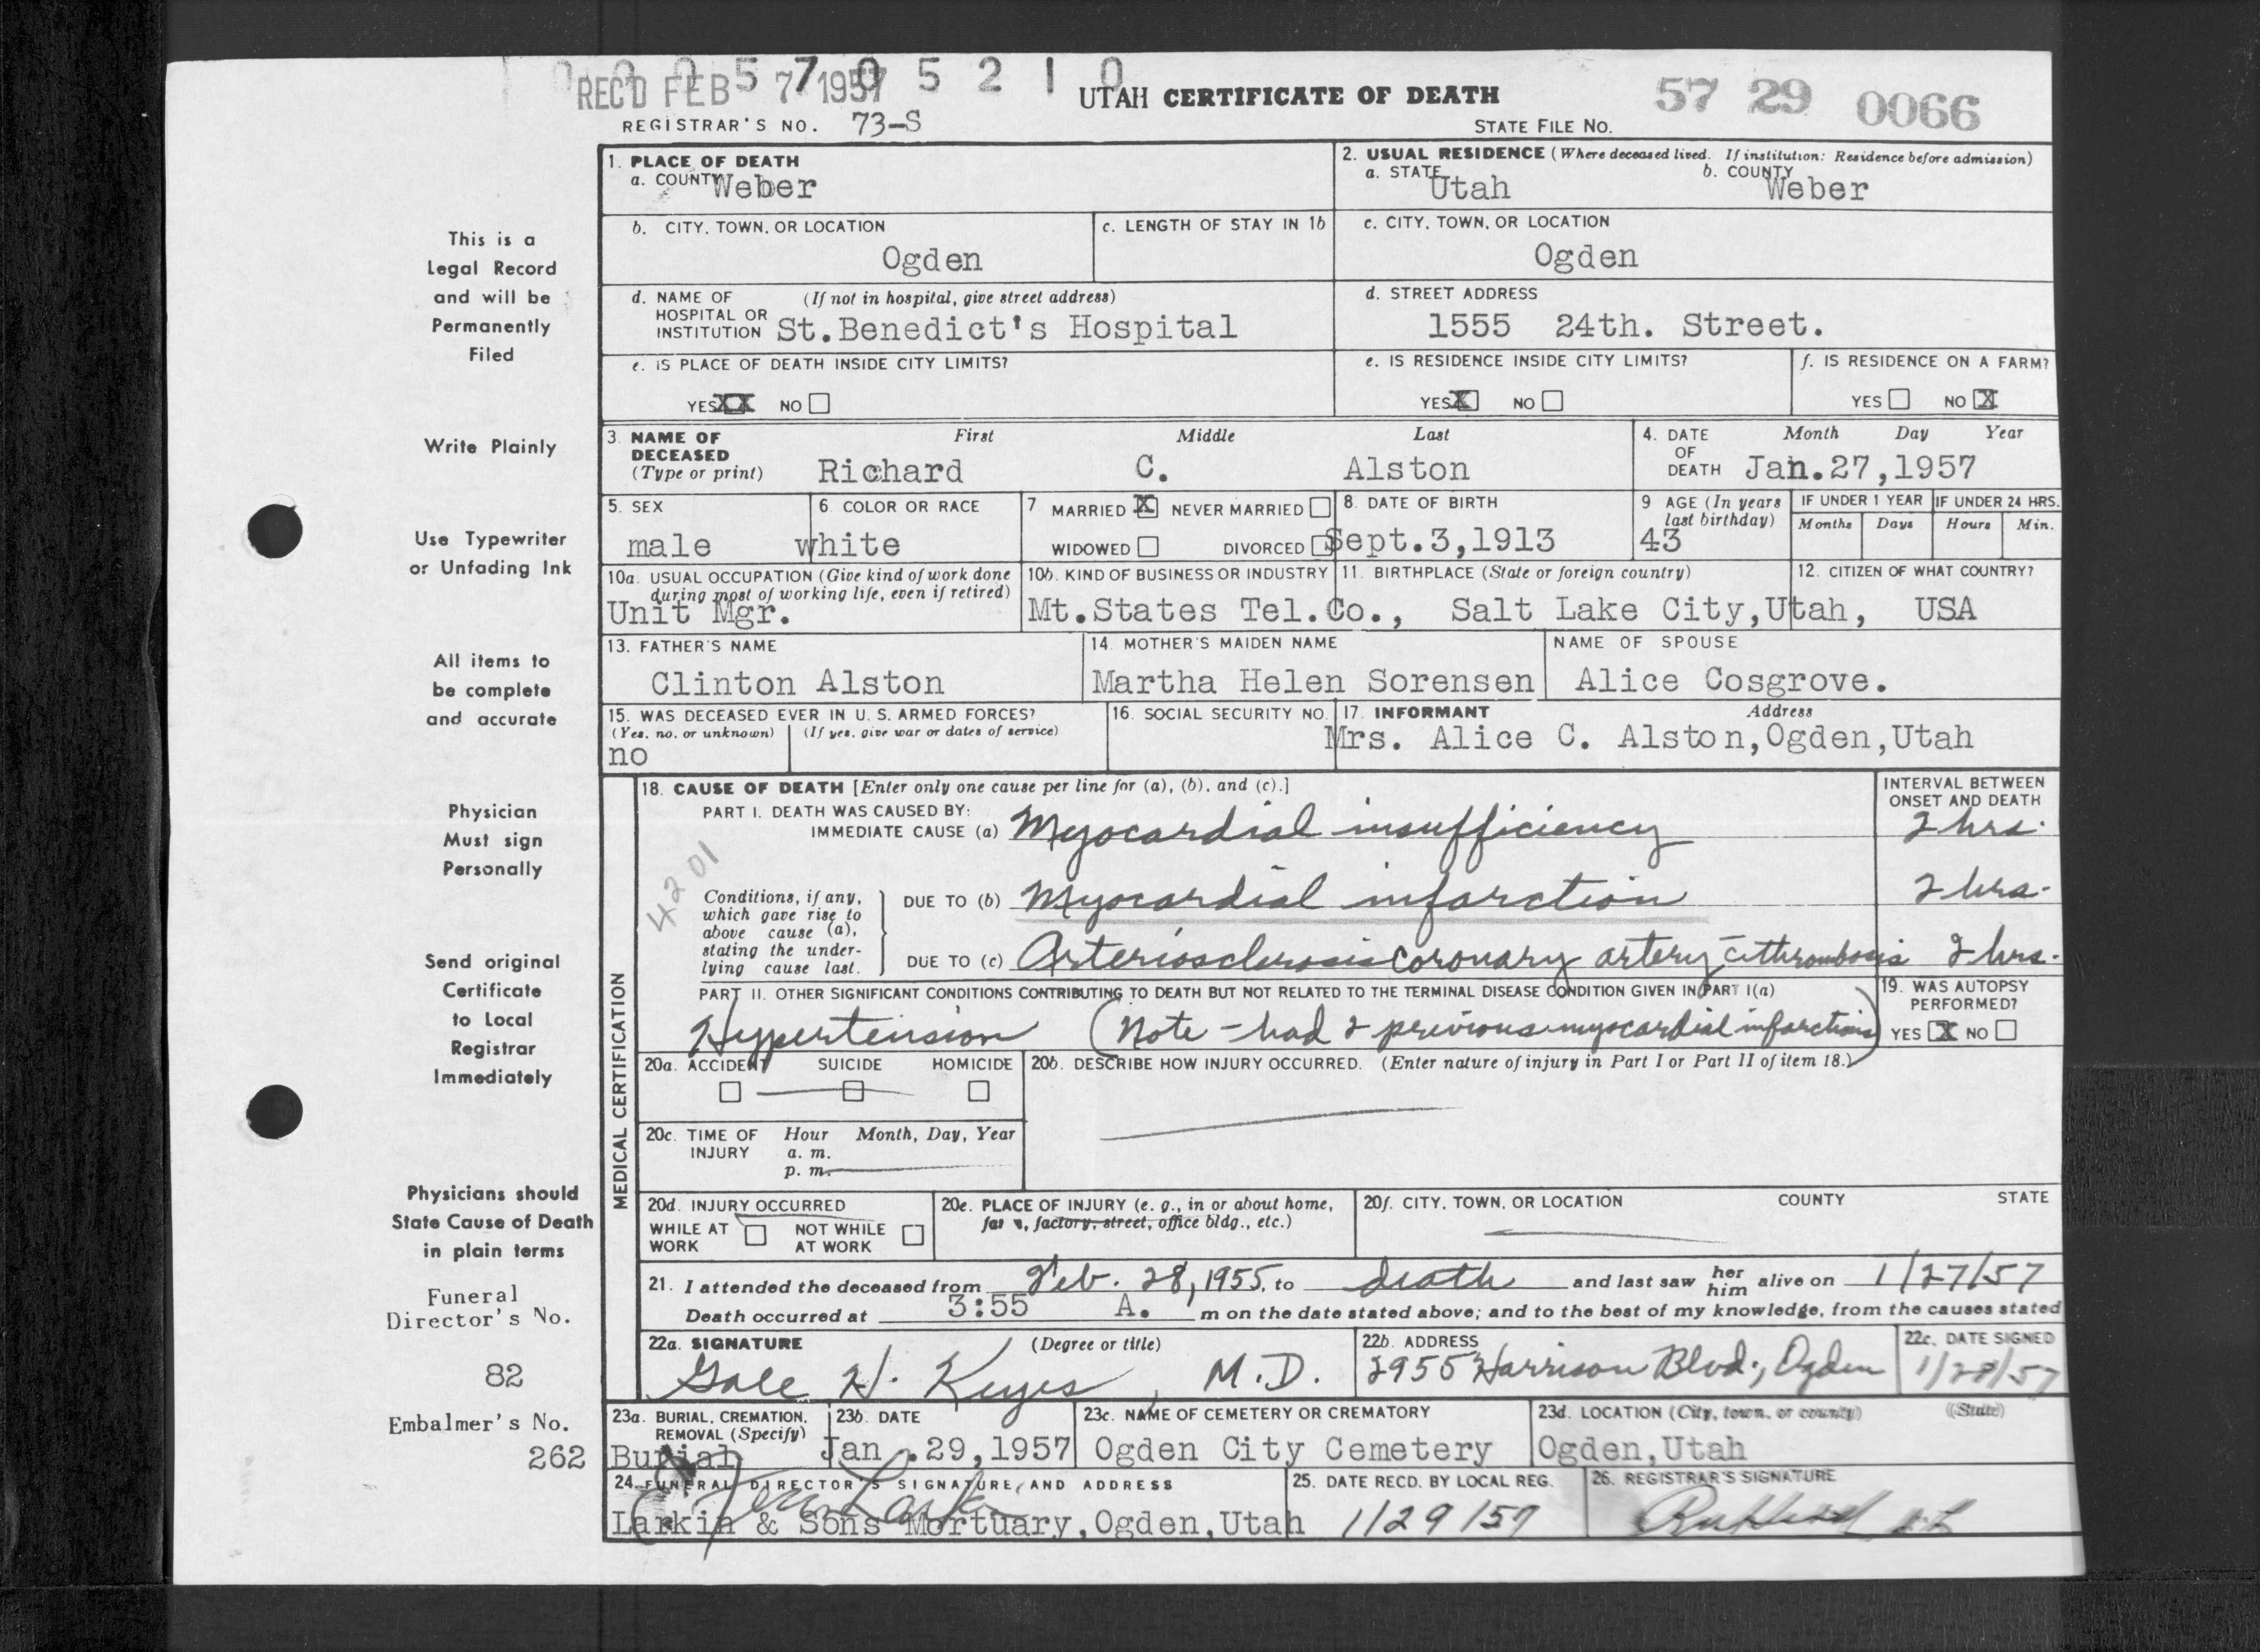 0 0 0 5 7 0 5 2 1 0
REC'D FEB 7 1957
UTAH CERTIFICATE OF DEATH
57 29 0066
REGISTRAR'S NO. 73-S
STATE FILE NO.
1. PLACE OF DEATH
a. COUNTY Weber
2. USUAL RESIDENCE (Where deceased lived. If institution: Residence before admission)
a. STATE Utah b. COUNTY Weber
b. CITY, TOWN, OR LOCATION Ogden
c. LENGTH OF STAY IN 1b
c. CITY, TOWN, OR LOCATION
Ogden
d. NAME OF HOSPITAL OR INSTITUTION (If not in hospital, give street address)
St.Benedict's Hospital
d. STREET ADDRESS
1555 24th. Street.
e. IS PLACE OF DEATH INSIDE CITY LIMITS?
YES XX NO
e. IS RESIDENCE INSIDE CITY LIMITS?
YES X NO
f. IS RESIDENCE ON A FARM?
YES NO X
3. NAME OF DECEASED (Type or print)
First Middle Last
Richard C. Alston
4. DATE OF DEATH Month Day Year
Jan.27,1957
5. SEX
male
6 COLOR OR RACE
white
7 MARRIED X NEVER MARRIED
WIDOWED DIVORCED
8. DATE OF BIRTH
Sept.3,1913
9 AGE (In years last birthday)
43
IF UNDER 1 YEAR
Months Days
IF UNDER 24 HRS.
Hours Min.
10a. USUAL OCCUPATION (Give kind of work done during most of working life, even if retired)
Unit Mgr.
10b. KIND OF BUSINESS OR INDUSTRY
Mt.States Tel.Co.,
11. BIRTHPLACE (State or foreign country)
Salt Lake City,Utah,
12. CITIZEN OF WHAT COUNTRY?
USA
13. FATHER'S NAME
Clinton Alston
14. MOTHER'S MAIDEN NAME
Martha Helen Sorensen
NAME OF SPOUSE
Alice Cosgrove.
15. WAS DECEASED EVER IN U. S. ARMED FORCES?
(Yes, no, or unknown) (If yes, give war or dates of service)
no
16. SOCIAL SECURITY NO.
17. INFORMANT Address
Mrs. Alice C. Alston,Ogden,Utah
MEDICAL CERTIFICATION
18. CAUSE OF DEATH [Enter only one cause per line for (a), (b), and (c).]
INTERVAL BETWEEN ONSET AND DEATH
PART I. DEATH WAS CAUSED BY:
IMMEDIATE CAUSE (a) Myocardial insufficiency 2 hrs.
4201
Conditions, if any, which gave rise to above cause (a), stating the underlying cause last.
DUE TO (b) Myocardial infarction 2 hrs.
DUE TO (c) Arteriosclerosis coronary artery c̄ thrombosis 2 hrs.
PART II. OTHER SIGNIFICANT CONDITIONS CONTRIBUTING TO DEATH BUT NOT RELATED TO THE TERMINAL DISEASE CONDITION GIVEN IN PART I(a)
Hypertension (Note - had 2 previous myocardial infarctions)
19. WAS AUTOPSY PERFORMED?
YES X NO
20a. ACCIDENT SUICIDE HOMICIDE
20b. DESCRIBE HOW INJURY OCCURRED. (Enter nature of injury in Part I or Part II of item 18.)
20c. TIME OF INJURY Hour Month, Day, Year
a. m.
p. m.
20d. INJURY OCCURRED
WHILE AT WORK NOT WHILE AT WORK
20e. PLACE OF INJURY (e. g., in or about home, farm, factory, street, office bldg., etc.)
20f. CITY, TOWN, OR LOCATION COUNTY STATE
21. I attended the deceased from Feb. 28, 1955, to death and last saw her him alive on 1/27/57
Death occurred at 3:55 A. m on the date stated above; and to the best of my knowledge, from the causes stated
22a. SIGNATURE (Degree or title)
Gale H. Keyes, M.D.
22b. ADDRESS
2955 Harrison Blvd., Ogden
22c. DATE SIGNED
1/28/57
23a. BURIAL, CREMATION, REMOVAL (Specify)
Burial
23b. DATE
Jan.29,1957
23c. NAME OF CEMETERY OR CREMATORY
Ogden City Cemetery
23d. LOCATION (City, town, or county) (State)
Ogden,Utah
24. FUNERAL DIRECTOR'S SIGNATURE, AND ADDRESS
Larkin & Sons Mortuary,Ogden,Utah
25. DATE RECD. BY LOCAL REG.
1/29/57
26. REGISTRAR'S SIGNATURE
This is a
Legal Record
and will be
Permanently
Filed
Write Plainly
Use Typewriter
or Unfading Ink
All items to
be complete
and accurate
Physician
Must sign
Personally
Send original
Certificate
to Local
Registrar
Immediately
Physicians should
State Cause of Death
in plain terms
Funeral
Director's No.
82
Embalmer's No.
262